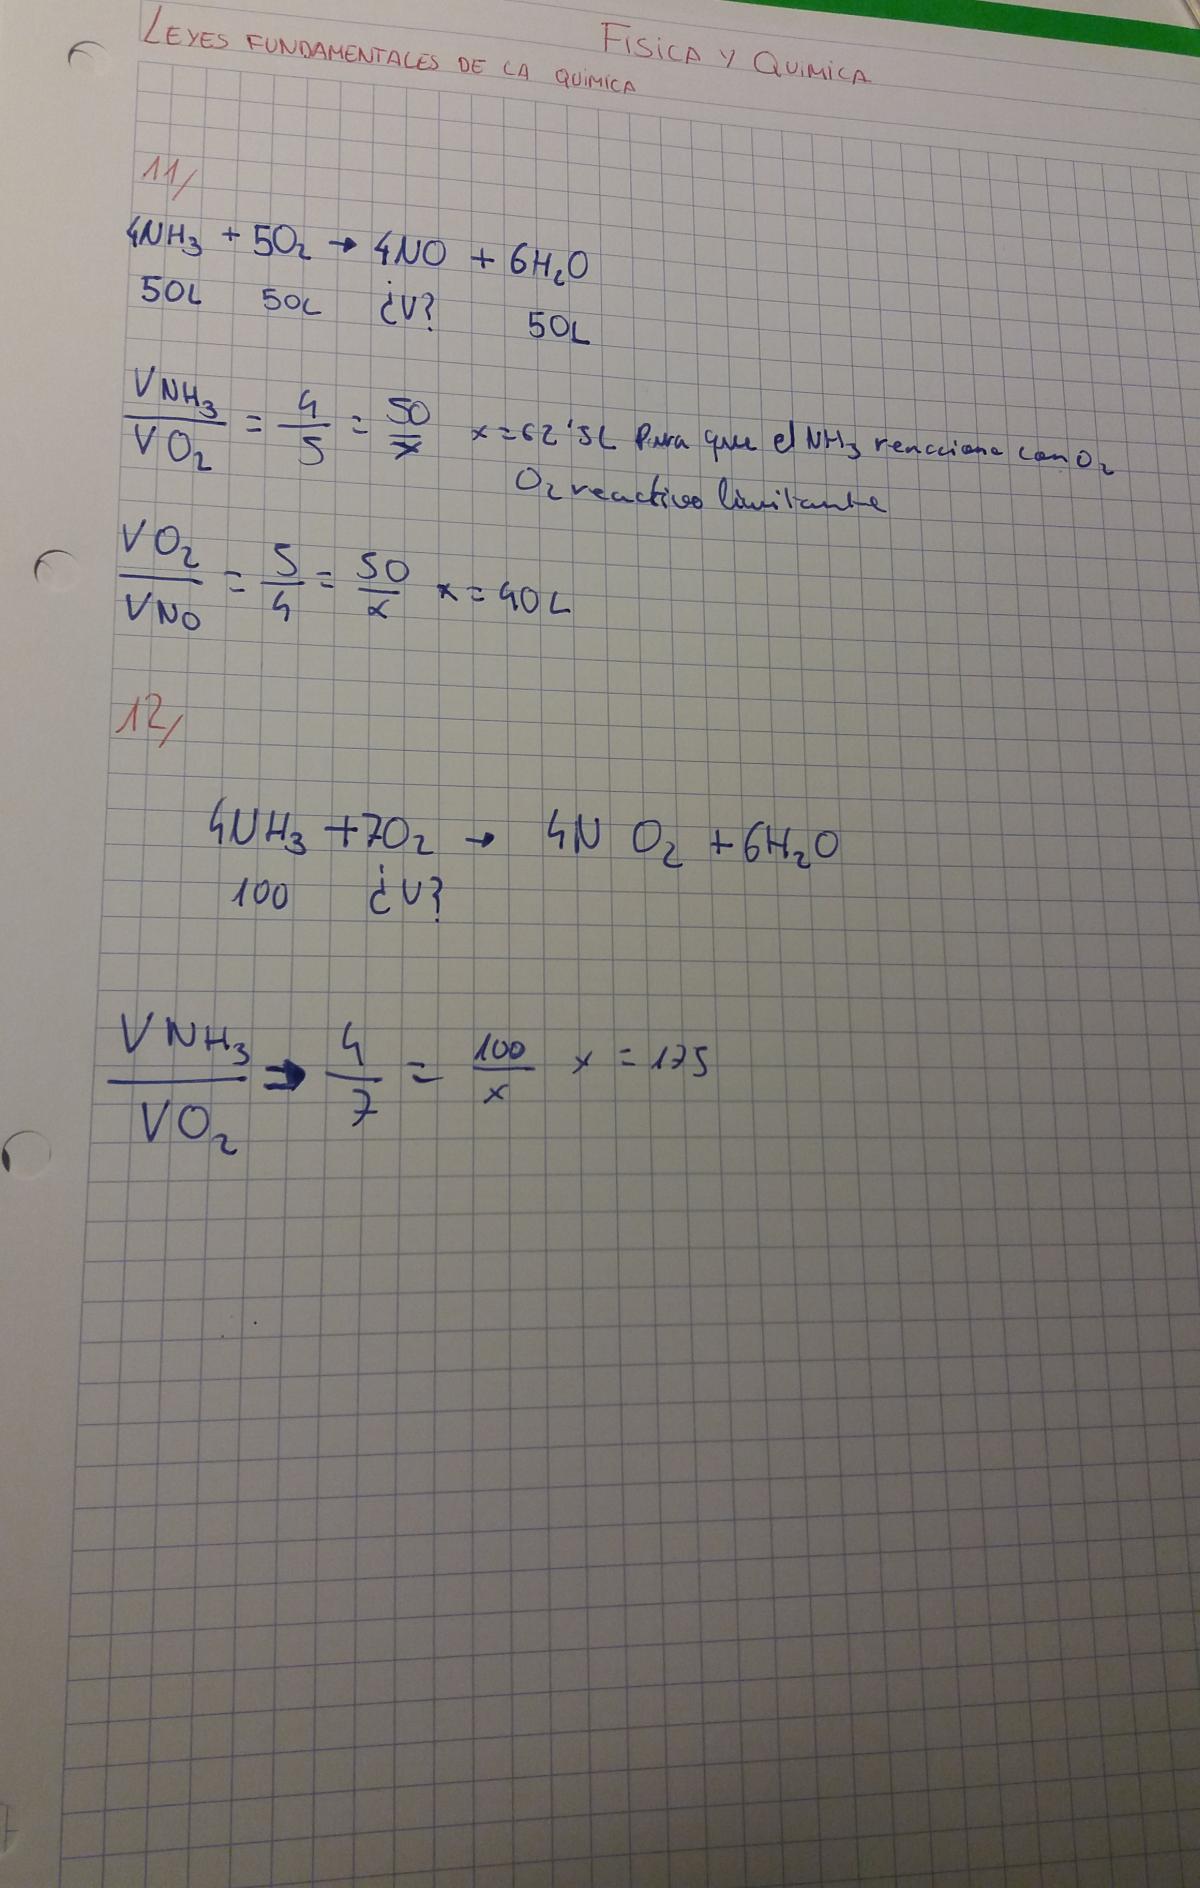 FISICA Y QUIMICA
LEYES FUNDAMENTALES DE LA QUIMICA
11/
4NH₃ + 5O₂ → 4NO + 6H₂O
50L 50L ¿V? 50L
VNH₃/VO₂ = 4/5 = 50/x x=62'5L Para que el NH₃ reaccione con O₂
O₂ reactivo limitante
VO₂/VNO = 5/4 = 50/x x=40L
12/
4NH₃ +7O₂ → 4N O₂ +6H₂O
100 ¿V?
VNH₃/VO₂ ⇒ 4/7 = 100/x x = 175